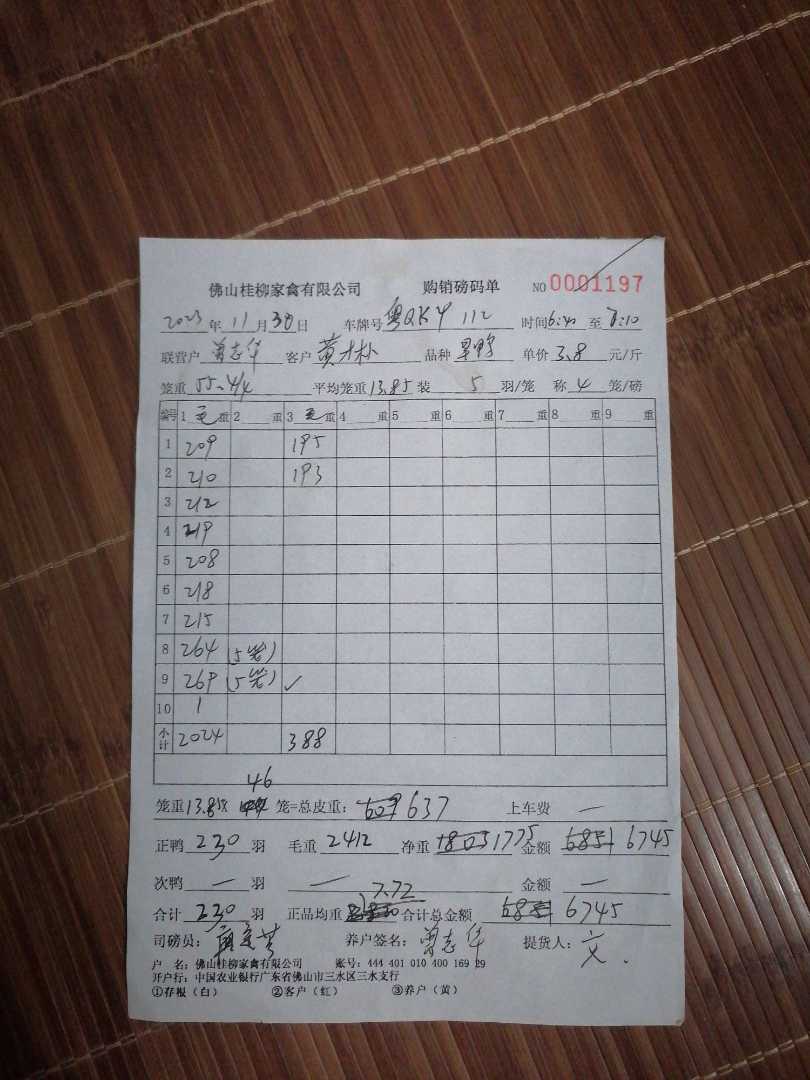 佛山桂柳家禽有限公司 购销磅码单 NO 0001197
2023年11月30日 车牌号 粤QKY112 时间6:40至7:10
联营户 曾志华 客户 黄才朴 品种 单价 3.8 元/斤
笼重 55.4/4 平均笼重13.85装 5 羽/笼 称 4 笼/磅
编号 1 毛 重 2 重 3 毛 重 4 重 5 重 6 重 7 重 8 重 9 重
1 209 195
2 210 193
3 212
4 219
5 208
6 218
7 215
8 264 (5笼)
9 269 (5笼) ✓
10 1
小计 2024 388
46
笼重13.85x 笼=总皮重: 637 上车费 —
正鸭 230 羽 毛重 2412 净重 1775 金额 6851 6745
次鸭 — 羽 — 金额 —
7.72
合计 230 羽 正品均重 合计总金额 6851 6745
司磅员: 养户签名: 曾志华 提货人: 文
户 名: 佛山桂柳家禽有限公司 账号: 444 401 010 400 169 29
开户行: 中国农业银行广东省佛山市三水区三水支行
①存根(白) ②客户(红) ③养户(黄)